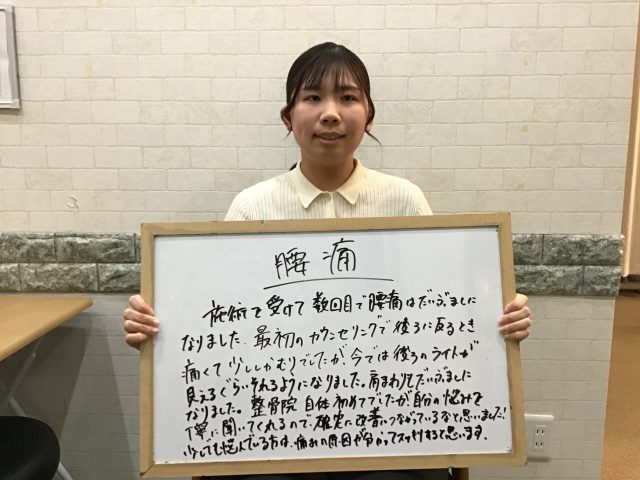 腰痛
施術を受けて数回目で腰痛はだいぶましに
なりました。最初のカウンセリングで後ろに反るとき
痛くて少ししかむりでしたが、今では後ろのライトが
見えるぐらいそれるようになりました。肩まわりもだいぶましに
なりました。整骨院自体初めてでしたが自分の悩みを
丁寧に聞いてくれるので、確実に改善へつながっているなと思いました!
少しでも悩んでいる方は、痛みの原因が分かってスッキリすると思います。